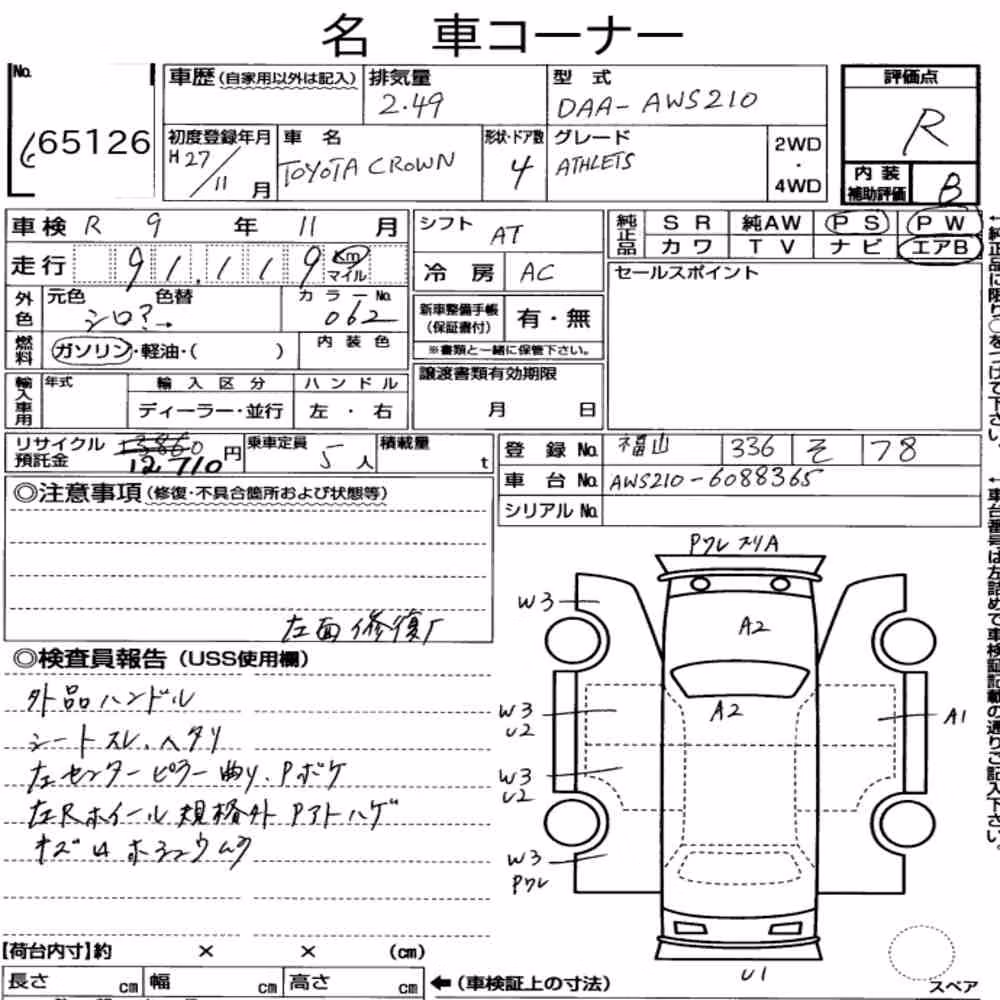 名 車コーナー
No. 65126
車歴(自家用以外は記入) 排気量 2.49 型式 DAA-AWS210 評価点 R
初度登録年月 H27/11月 車名 TOYOTA CROWN 形状・ドア数 4 グレード ATHLETS 2WD・4WD
内装補助評価 B
車検 R 9年 11月 シフト AT 純正品 SR 純AW PS PW
カワ TV ナビ エアB
走行 91,119 Km マイル 冷房 AC セールスポイント
外色 元色 シロ?→ 色替 カラーNo. 062 新車整備手帳(保証書付) 有・無
燃料 ガソリン・軽油・( ) 内装色 ※書類と一緒に保管下さい。
輸入車用 年式 輸入区分 ハンドル 譲渡書類有効期限
ディーラー・並行 左・右 月 日
リサイクル預託金 12,710円 乗車定員 5人 積載量 t 登録No. 福山 336 そ 78
車台No. AWS210-6088365
シリアルNo.
◎注意事項(修復・不具合箇所および状態等)
左面修復厂
◎検査員報告(USS使用欄)
外品ハンドル
シートスレ、ヘタリ
左センターピラー曲り、Pボケ
左Rホイール規格外 Pアトハゲ
キズ凹
【荷台内寸】約 × × (cm)
長さ cm 幅 cm 高さ cm ←(車検証上の寸法)
Pワレ スリA
W3
A2
W3
U2
A2
A1
W3
U2
W3
Pワレ
U1
スペア
←純正品に限り○をつけて下さい。
←車台番号は左詰めで車検証記載の通りご記入下さい。